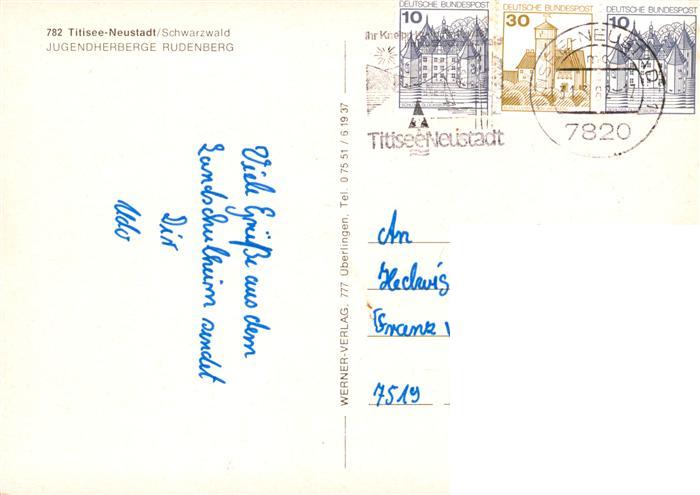 782 Titisee-Neustadt/Schwarzwald
JUGENDHERBERGE RUDENBERG
Viele Grüße aus dem
Landschulheim sendet
Dir
Udo
WERNER-VERLAG, 777 Überlingen, Tel. 0 75 51 / 6 19 37
DEUTSCHE BUNDESPOST
10
DEUTSCHE BUNDESPOST
30
DEUTSCHE BUNDESPOST
10
Ihr Kneipp
Titisee Neustadt
7820
An
Hedwig
Franz
7519